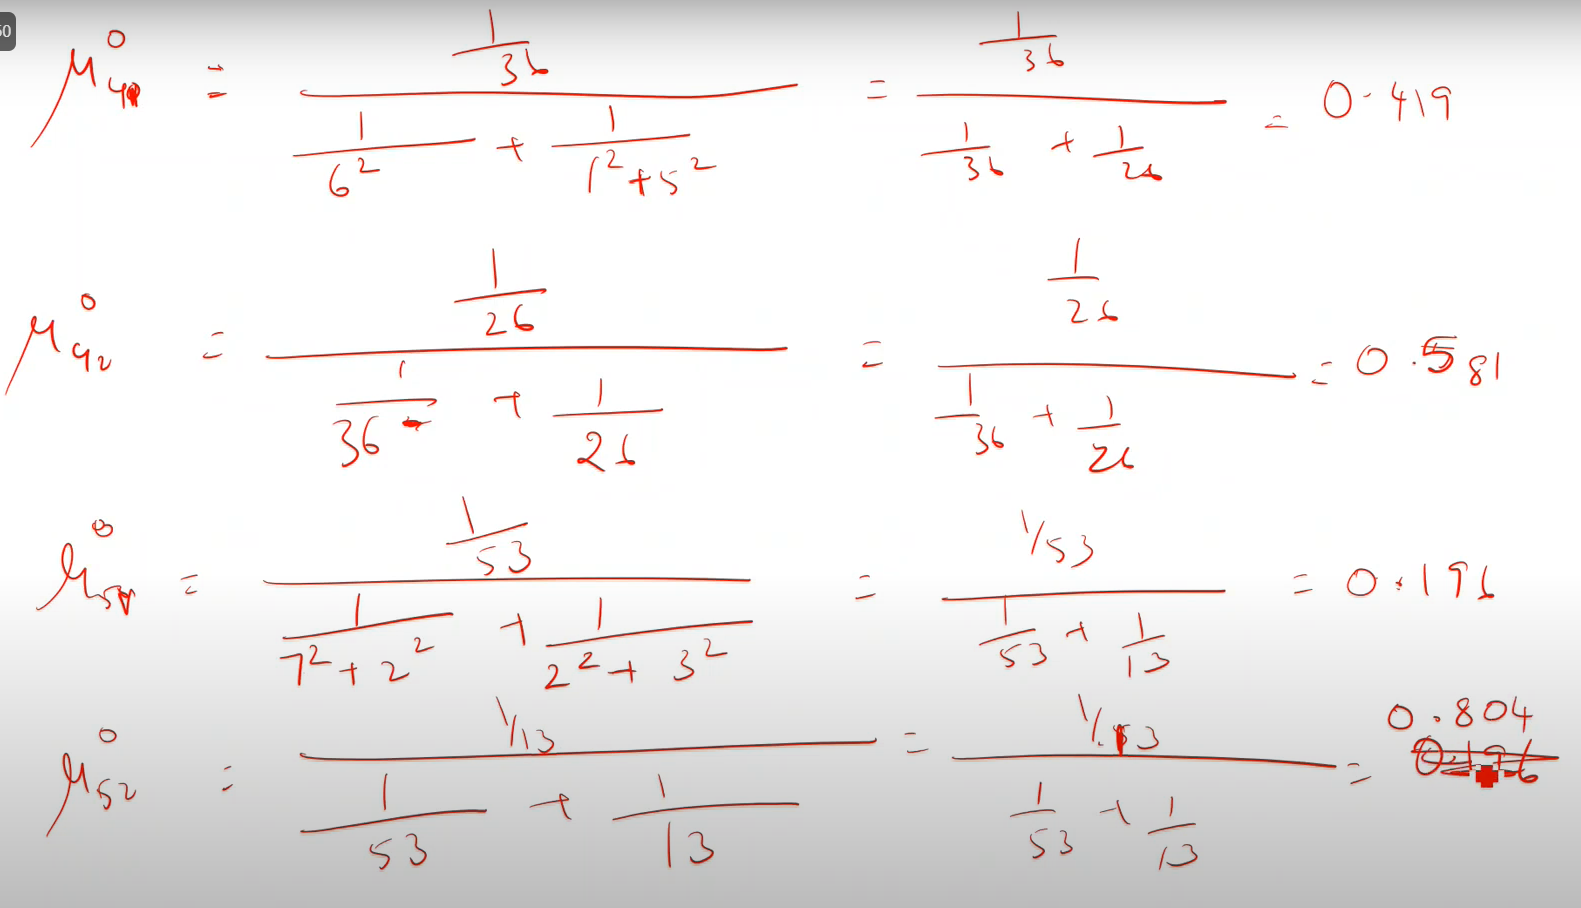 50
μ₄₁⁰ = (1/36) / (1/6² + 1/(1² + 5²)) = (1/36) / (1/36 + 1/26) = 0.419
μ₄₂⁰ = (1/26) / (1/36 + 1/26) = (1/26) / (1/36 + 1/26) = 0.581
μ₅₁⁰ = (1/53) / (1/(7² + 2²) + 1/(2² + 3²)) = (1/53) / (1/53 + 1/13) = 0.196
μ₅₂⁰ = (1/13) / (1/53 + 1/13) = (1/13) / (1/53 + 1/13) = 0.804